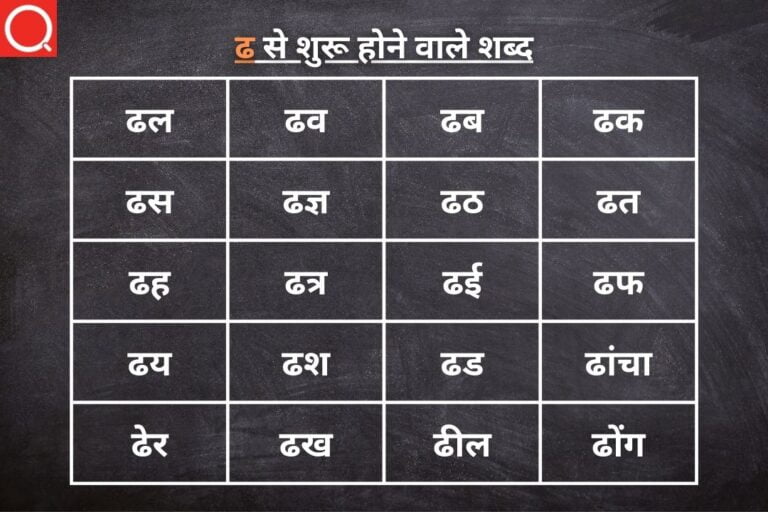 ढ से शुरू होने वाले शब्द
ढल ढव ढब ढक
ढस ढज्ञ ढठ ढत
ढह ढत्र ढई ढफ
ढय ढश ढड ढांचा
ढेर ढख ढील ढोंग